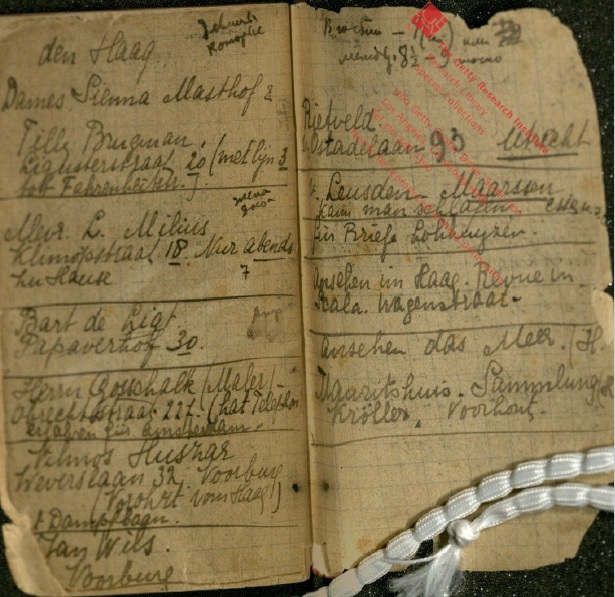 den Haag
Dames Sienna Masthof &
Tilly Brugman.
Ligusterstraat 20 (met lijn 3
tot Fahrenheitstr.)
Mevr. L. Milius
Klimopstraat 18. Nur abends
zu Hause 7
Bart de Ligt
Papaverhof 30.
Herrn Gosschalk (Maler)
Obrechtstraat 227. (hat Telefon
für Amsterdam.
Vilmos Huszar
Weverslaan 32. Voorburg
(Vorort vom Haag!)
Dampfbaan.
Jan Wils.
Voorburg
8½ - 9
Rietveld.
Ostadelaan 93 Utrecht
v. Leusden - Maarssen
kann man schlafen
für Briefe
ansehen im Haag. Revue in
Scala. Wagenstraat.
ansehen das Meer. (H.
Mauritshuis. Sammlung
Kröller, Voorhout.
The Getty Research Institute
Research Library
Special Collections